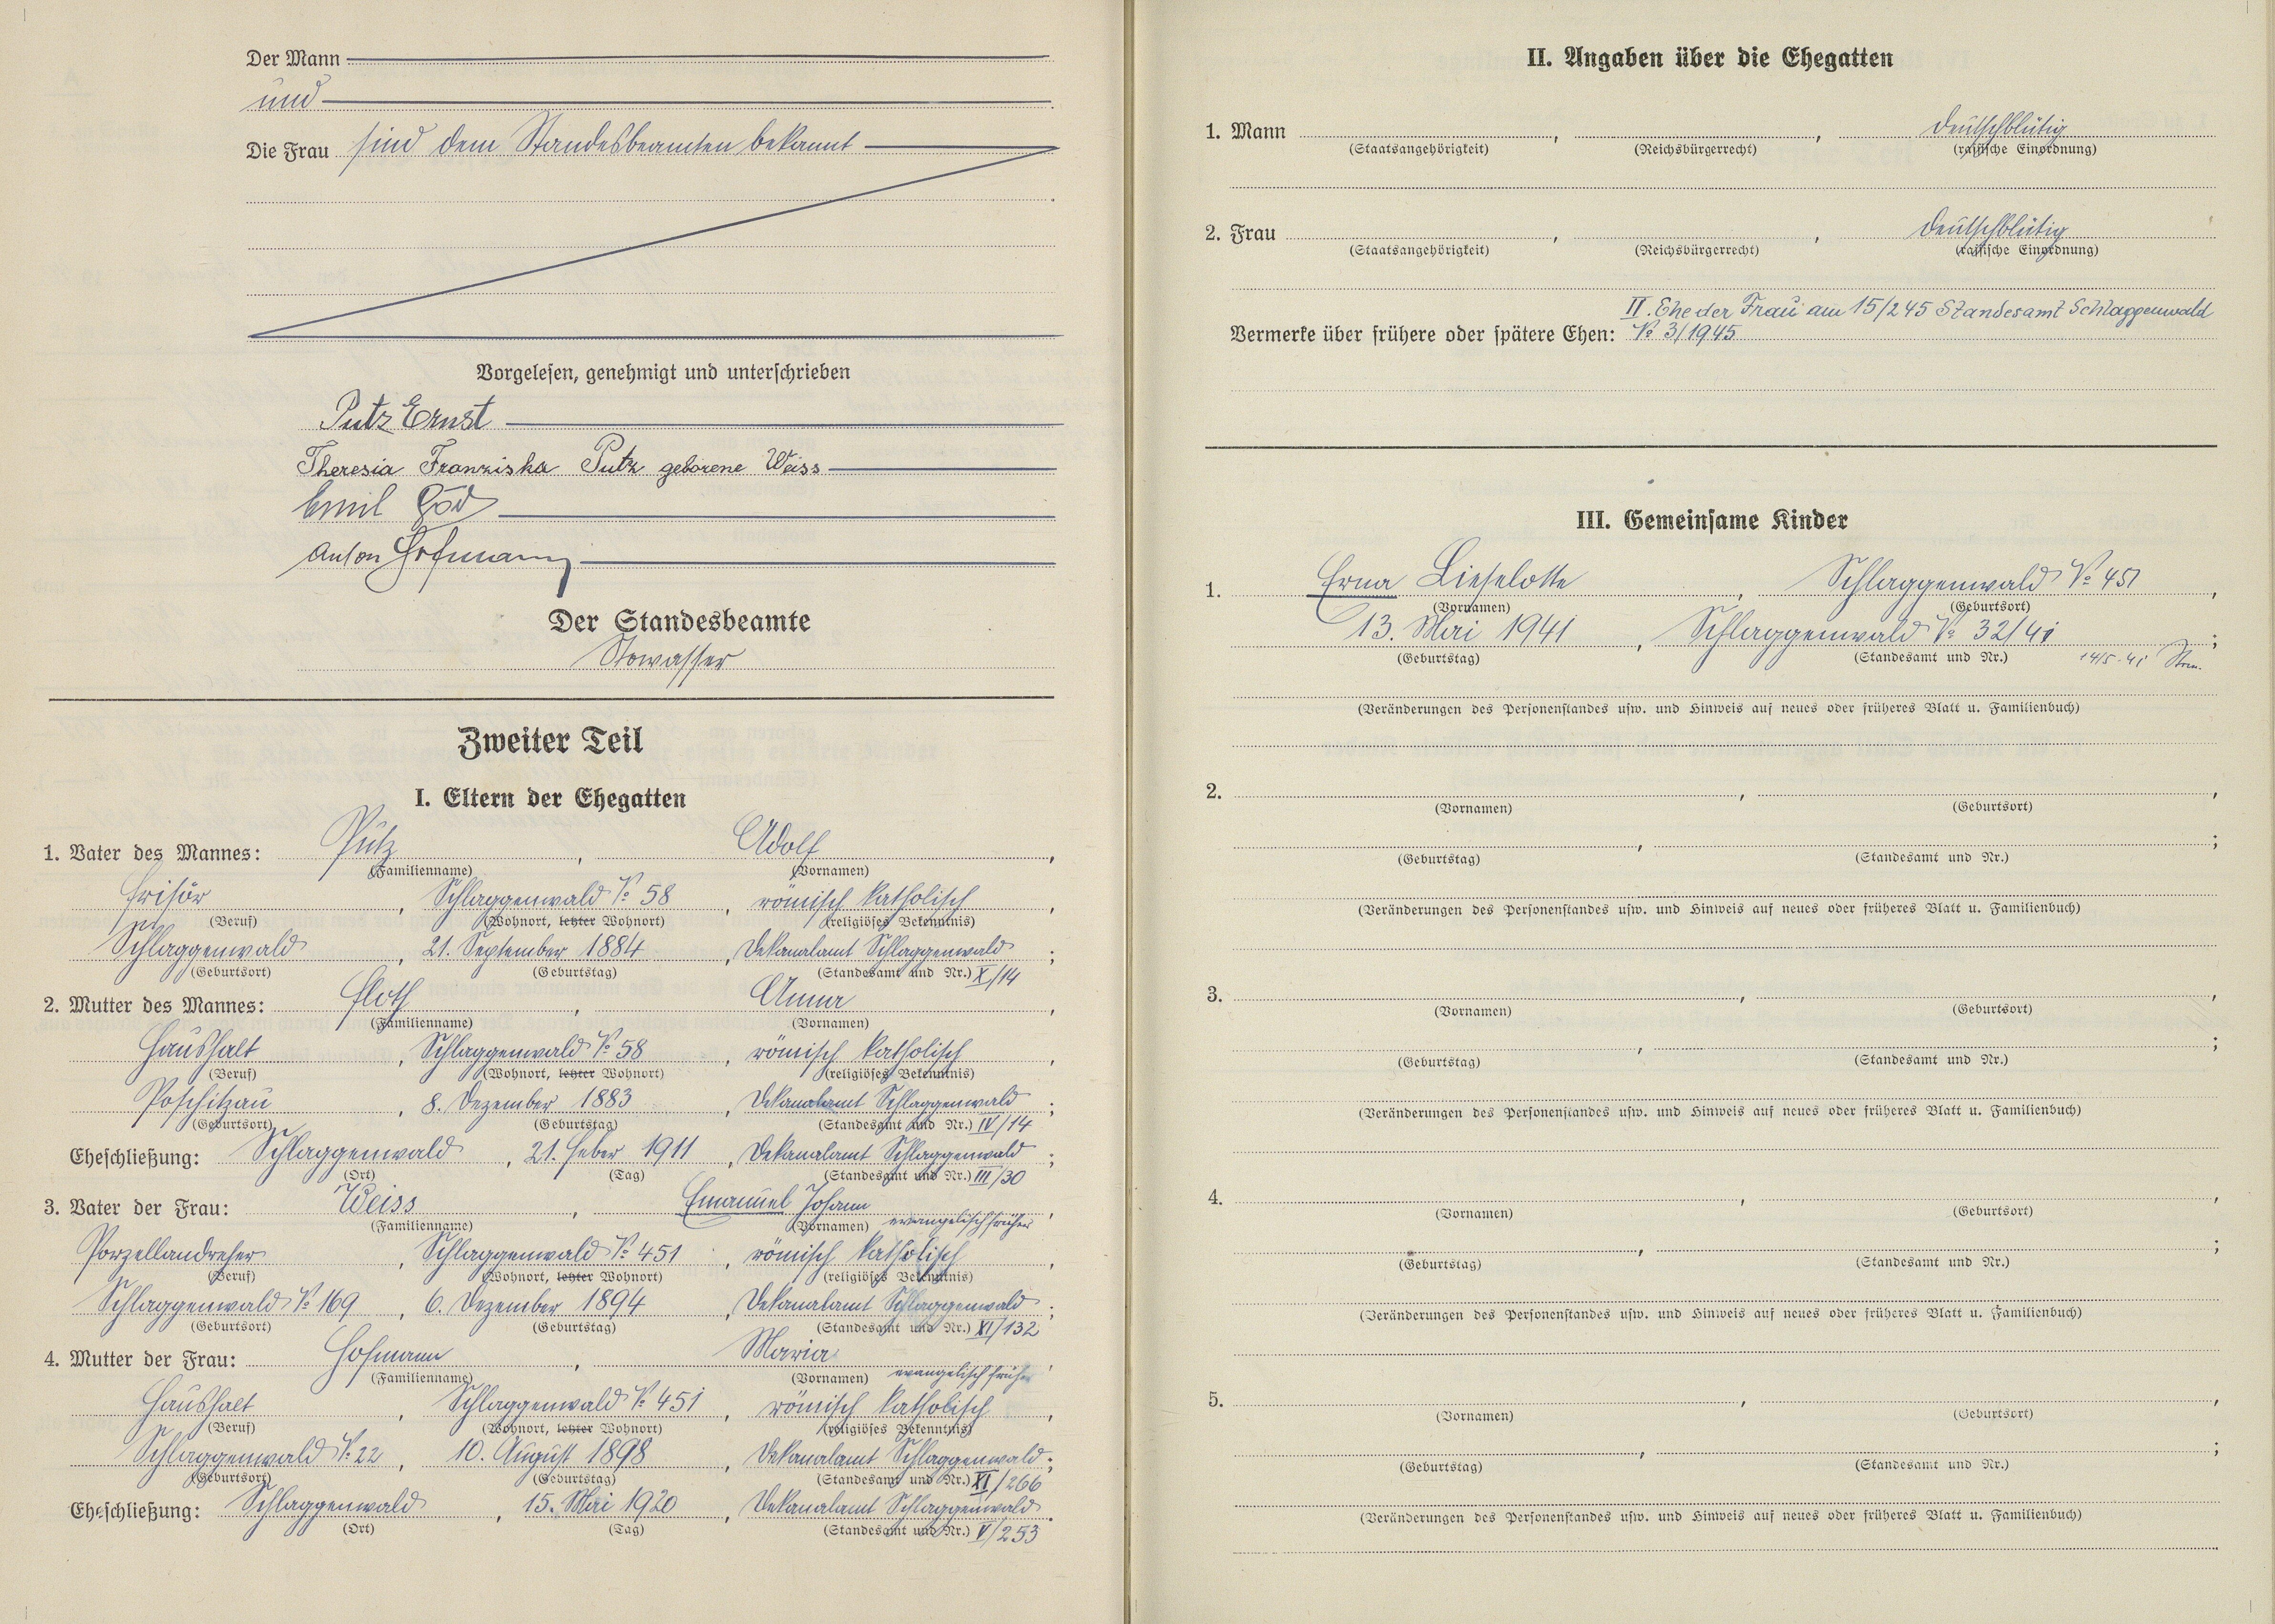 Der Mann
und
Die Frau sind dem Standesbeamten bekannt
Vorgelesen, genehmigt und unterschrieben
Putz Ernst
Theresia Franziska Putz geborene Weiss
Emil
Anton Hofmann
Der Standesbeamte
Stowasser
Zweiter Teil
I. Eltern der Ehegatten
1. Vater des Mannes: Putz, Adolf,
(Familienname) (Vornamen)
Frisör, Schlaggenwald No 58, römisch katholisch,
(Beruf) (Wohnort, letzter Wohnort) (religiöses Bekenntnis)
Schlaggenwald, 21. September 1884, Dekanalamt Schlaggenwald;
(Geburtsort) (Geburtstag) (Standesamt und Nr.) X/14
2. Mutter des Mannes: Floth, Anna,
(Familienname) (Vornamen)
Haushalt, Schlaggenwald No 58, römisch katholisch,
(Beruf) (Wohnort, letzter Wohnort) (religiöses Bekenntnis)
Poschitzau, 8. Dezember 1883, Dekanalamt Schlaggenwald;
(Geburtsort) (Geburtstag) (Standesamt und Nr.) IV/14
Eheschließung: Schlaggenwald, 21. Feber 1911, Dekanalamt Schlaggenwald;
(Ort) (Tag) (Standesamt und Nr.) III/30
3. Vater der Frau: Weiss, Emanuel Johann,
(Familienname) (Vornamen) evangelisch früher
Porzellandreher, Schlaggenwald No 451, römisch katholisch,
(Beruf) (Wohnort, letzter Wohnort) (religiöses Bekenntnis)
Schlaggenwald No 169, 6. Dezember 1894, Dekanalamt Schlaggenwald;
(Geburtsort) (Geburtstag) (Standesamt und Nr.) XI/132
4. Mutter der Frau: Hofmann, Maria,
(Familienname) (Vornamen) evangelisch früher
Haushalt, Schlaggenwald No 451, römisch katholisch,
(Beruf) (Wohnort, letzter Wohnort) (religiöses Bekenntnis)
Schlaggenwald No 22, 10. August 1898, Dekanalamt Schlaggenwald;
(Geburtsort) (Geburtstag) (Standesamt und Nr.) XI/266
Eheschließung: Schlaggenwald, 15. Mai 1920, Dekanalamt Schlaggenwald.
(Ort) (Tag) (Standesamt und Nr.) V/253
II. Angaben über die Ehegatten
1. Mann , , deutschblütig
(Staatsangehörigkeit) (Reichsbürgerrecht) (rassische Einordnung)
2. Frau , , deutschblütig
(Staatsangehörigkeit) (Reichsbürgerrecht) (rassische Einordnung)
II. Ehe der Frau am 15/2 45 Standesamt Schlaggenwald
Vermerke über frühere oder spätere Ehen: No 3/1945
III. Gemeinsame Kinder
1. Erna Lieselotte, Schlaggenwald No 451,
(Vornamen) (Geburtsort)
13. Mai 1941, Schlaggenwald No 32/41;
(Geburtstag) (Standesamt und Nr.) 14/5. 41
(Veränderungen des Personenstandes usw. und Hinweis auf neues oder früheres Blatt u. Familienbuch)
2. , ,
(Vornamen) (Geburtsort)
, ;
(Geburtstag) (Standesamt und Nr.)
(Veränderungen des Personenstandes usw. und Hinweis auf neues oder früheres Blatt u. Familienbuch)
3. , ,
(Vornamen) (Geburtsort)
, ;
(Geburtstag) (Standesamt und Nr.)
(Veränderungen des Personenstandes usw. und Hinweis auf neues oder früheres Blatt u. Familienbuch)
4. , ,
(Vornamen) (Geburtsort)
, ;
(Geburtstag) (Standesamt und Nr.)
(Veränderungen des Personenstandes usw. und Hinweis auf neues oder früheres Blatt u. Familienbuch)
5. , ,
(Vornamen) (Geburtsort)
, ;
(Geburtstag) (Standesamt und Nr.)
(Veränderungen des Personenstandes usw. und Hinweis auf neues oder früheres Blatt u. Familienbuch)